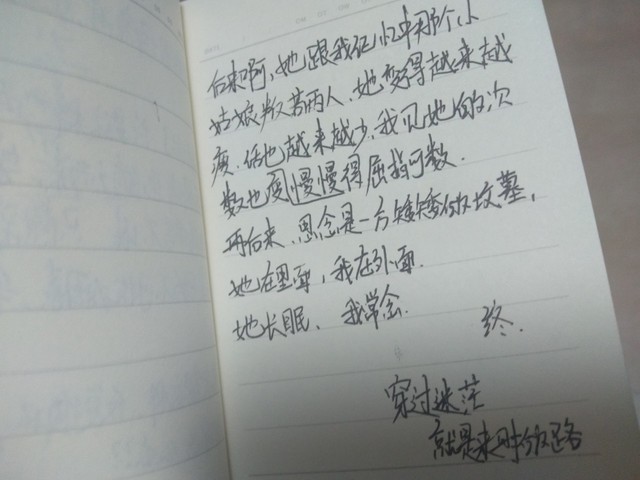 后来啊,她跟我记忆中那个小
姑娘判若两人,她变得越来越
瘦.话也越来越少,我见她的次
数也慢慢得屈指可数.
再后来、思念是一方矮矮的坟墓,
她在里面,我在外面.
她长眠、我常念.
终.
穿过迷茫
就是来时的路